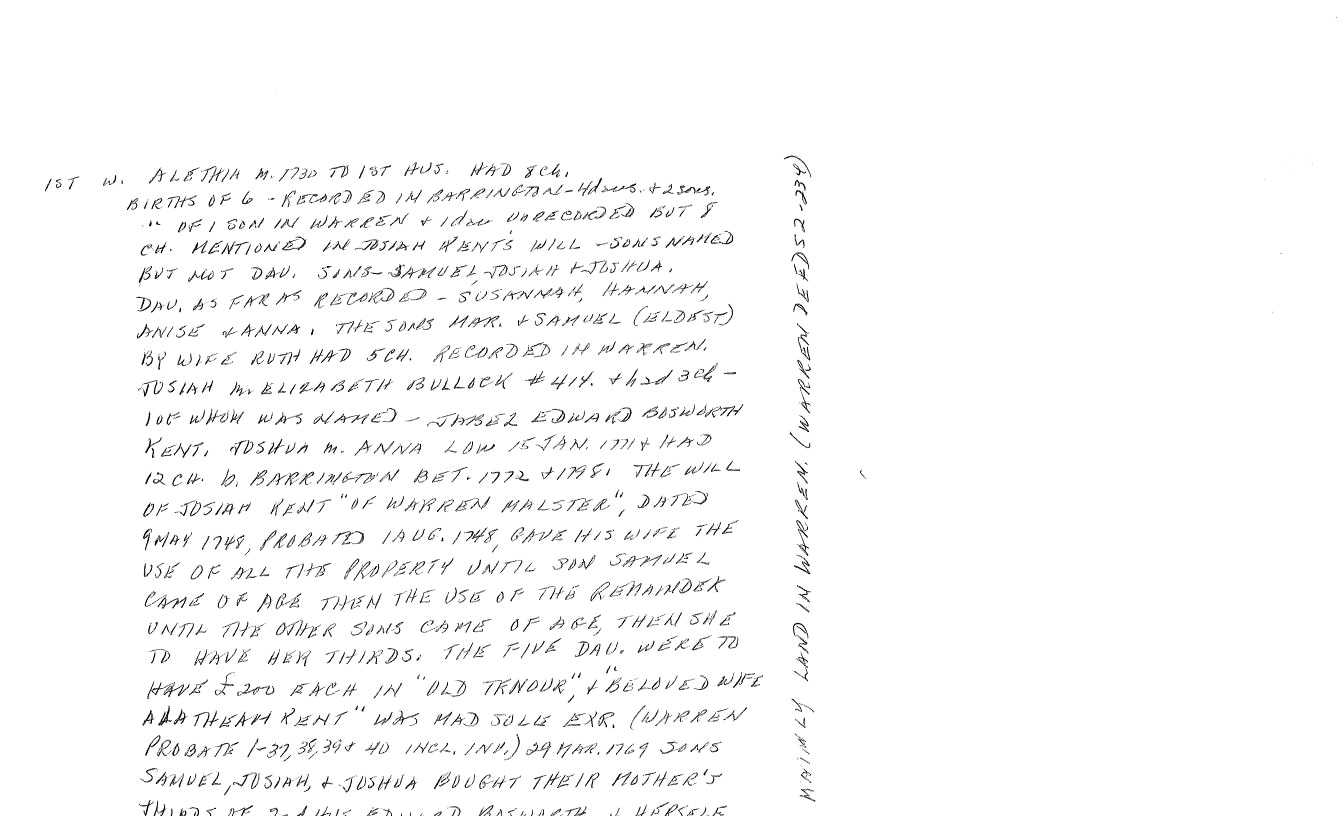 1ST W. ALETHIA M. 1730 TO 1ST HUS. HAD 8 ch.
BIRTHS OF 6 - RECORDED IN BARRINGTON - 4 daus. + 2 sons.
" OF 1 SON IN WARREN + 1 dau UNRECORDED BUT 8
CH. MENTIONED IN JOSIAH KENT'S WILL - SONS NAMED
BUT NOT DAU. SONS - SAMUEL, JOSIAH + JOSHUA.
DAU. AS FAR AS RECORDED - SUSANNAH, HANNAH,
ANISE + ANNA. THE SONS MAR. + SAMUEL (ELDEST)
BY WIFE RUTH HAD 5 CH. RECORDED IN WARREN.
JOSIAH m. ELIZABETH BULLOCK # 414. + had 3 ch -
1 OF WHOM WAS NAMED - JABEZ EDWARD BOSWORTH
KENT. JOSHUA m. ANNA LOW 15 JAN. 1771 + HAD
12 CH. b. BARRINGTON BET. 1772 + 1798. THE WILL
OF JOSIAH KENT "OF WARREN MALSTER", DATED
9 MAY 1748, PROBATED 1 AUG. 1748, GAVE HIS WIFE THE
USE OF ALL THE PROPERTY UNTIL SON SAMUEL
CAME OF AGE THEN THE USE OF THE REMAINDER
UNTIL THE OTHER SONS CAME OF AGE, THEN SHE
TO HAVE HER THIRDS. THE FIVE DAU. WERE TO
HAVE £200 EACH IN "OLD TENOUR", + "BELOVED WIFE
ALATHEAH KENT" WAS MAD SOLLE EXR. (WARREN
PROBATE 1-37, 38, 39 + 40 INCL. INV.) 29 MAR. 1769 SONS
SAMUEL, JOSIAH, + JOSHUA BOUGHT THEIR MOTHER'S
THIRDS OF 2nd HUS EDWARD BOSWORTH + HERSELF
MAINLY LAND IN WARREN. (WARREN DEEDS 2-234)